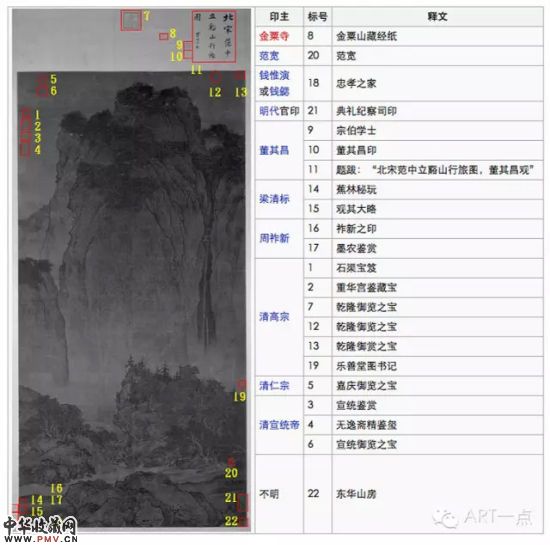 北宋范中
立谿山行旅
圖
7
8
9
10
11
12
13
5
6
1
2
3
4
19
20
21
22
16
17
14
15
印主 标号 释文
金粟寺 8 金粟山藏经纸
范宽 20 范宽
钱惟演或钱勰 18 忠孝之家
明代官印 21 典礼纪察司印
董其昌 9 宗伯学士
10 董其昌印
11 题跋：“北宋范中立谿山行旅图，董其昌观”
梁清标 14 蕉林秘玩
15 观其大略
周祚新 16 祚新之印
17 墨农鉴赏
清高宗 1 石渠宝笈
2 重华宫鉴藏宝
7 乾隆御览之宝
12 乾隆御览之宝
13 乾隆御赏之宝
19 乐善堂图书记
清仁宗 5 嘉庆御览之宝
清宣统帝 3 宣统鉴赏
4 无逸斋精鉴玺
6 宣统御览之宝
不明 22 东华山房
中华收藏网
www.PMV.cn
ART一点